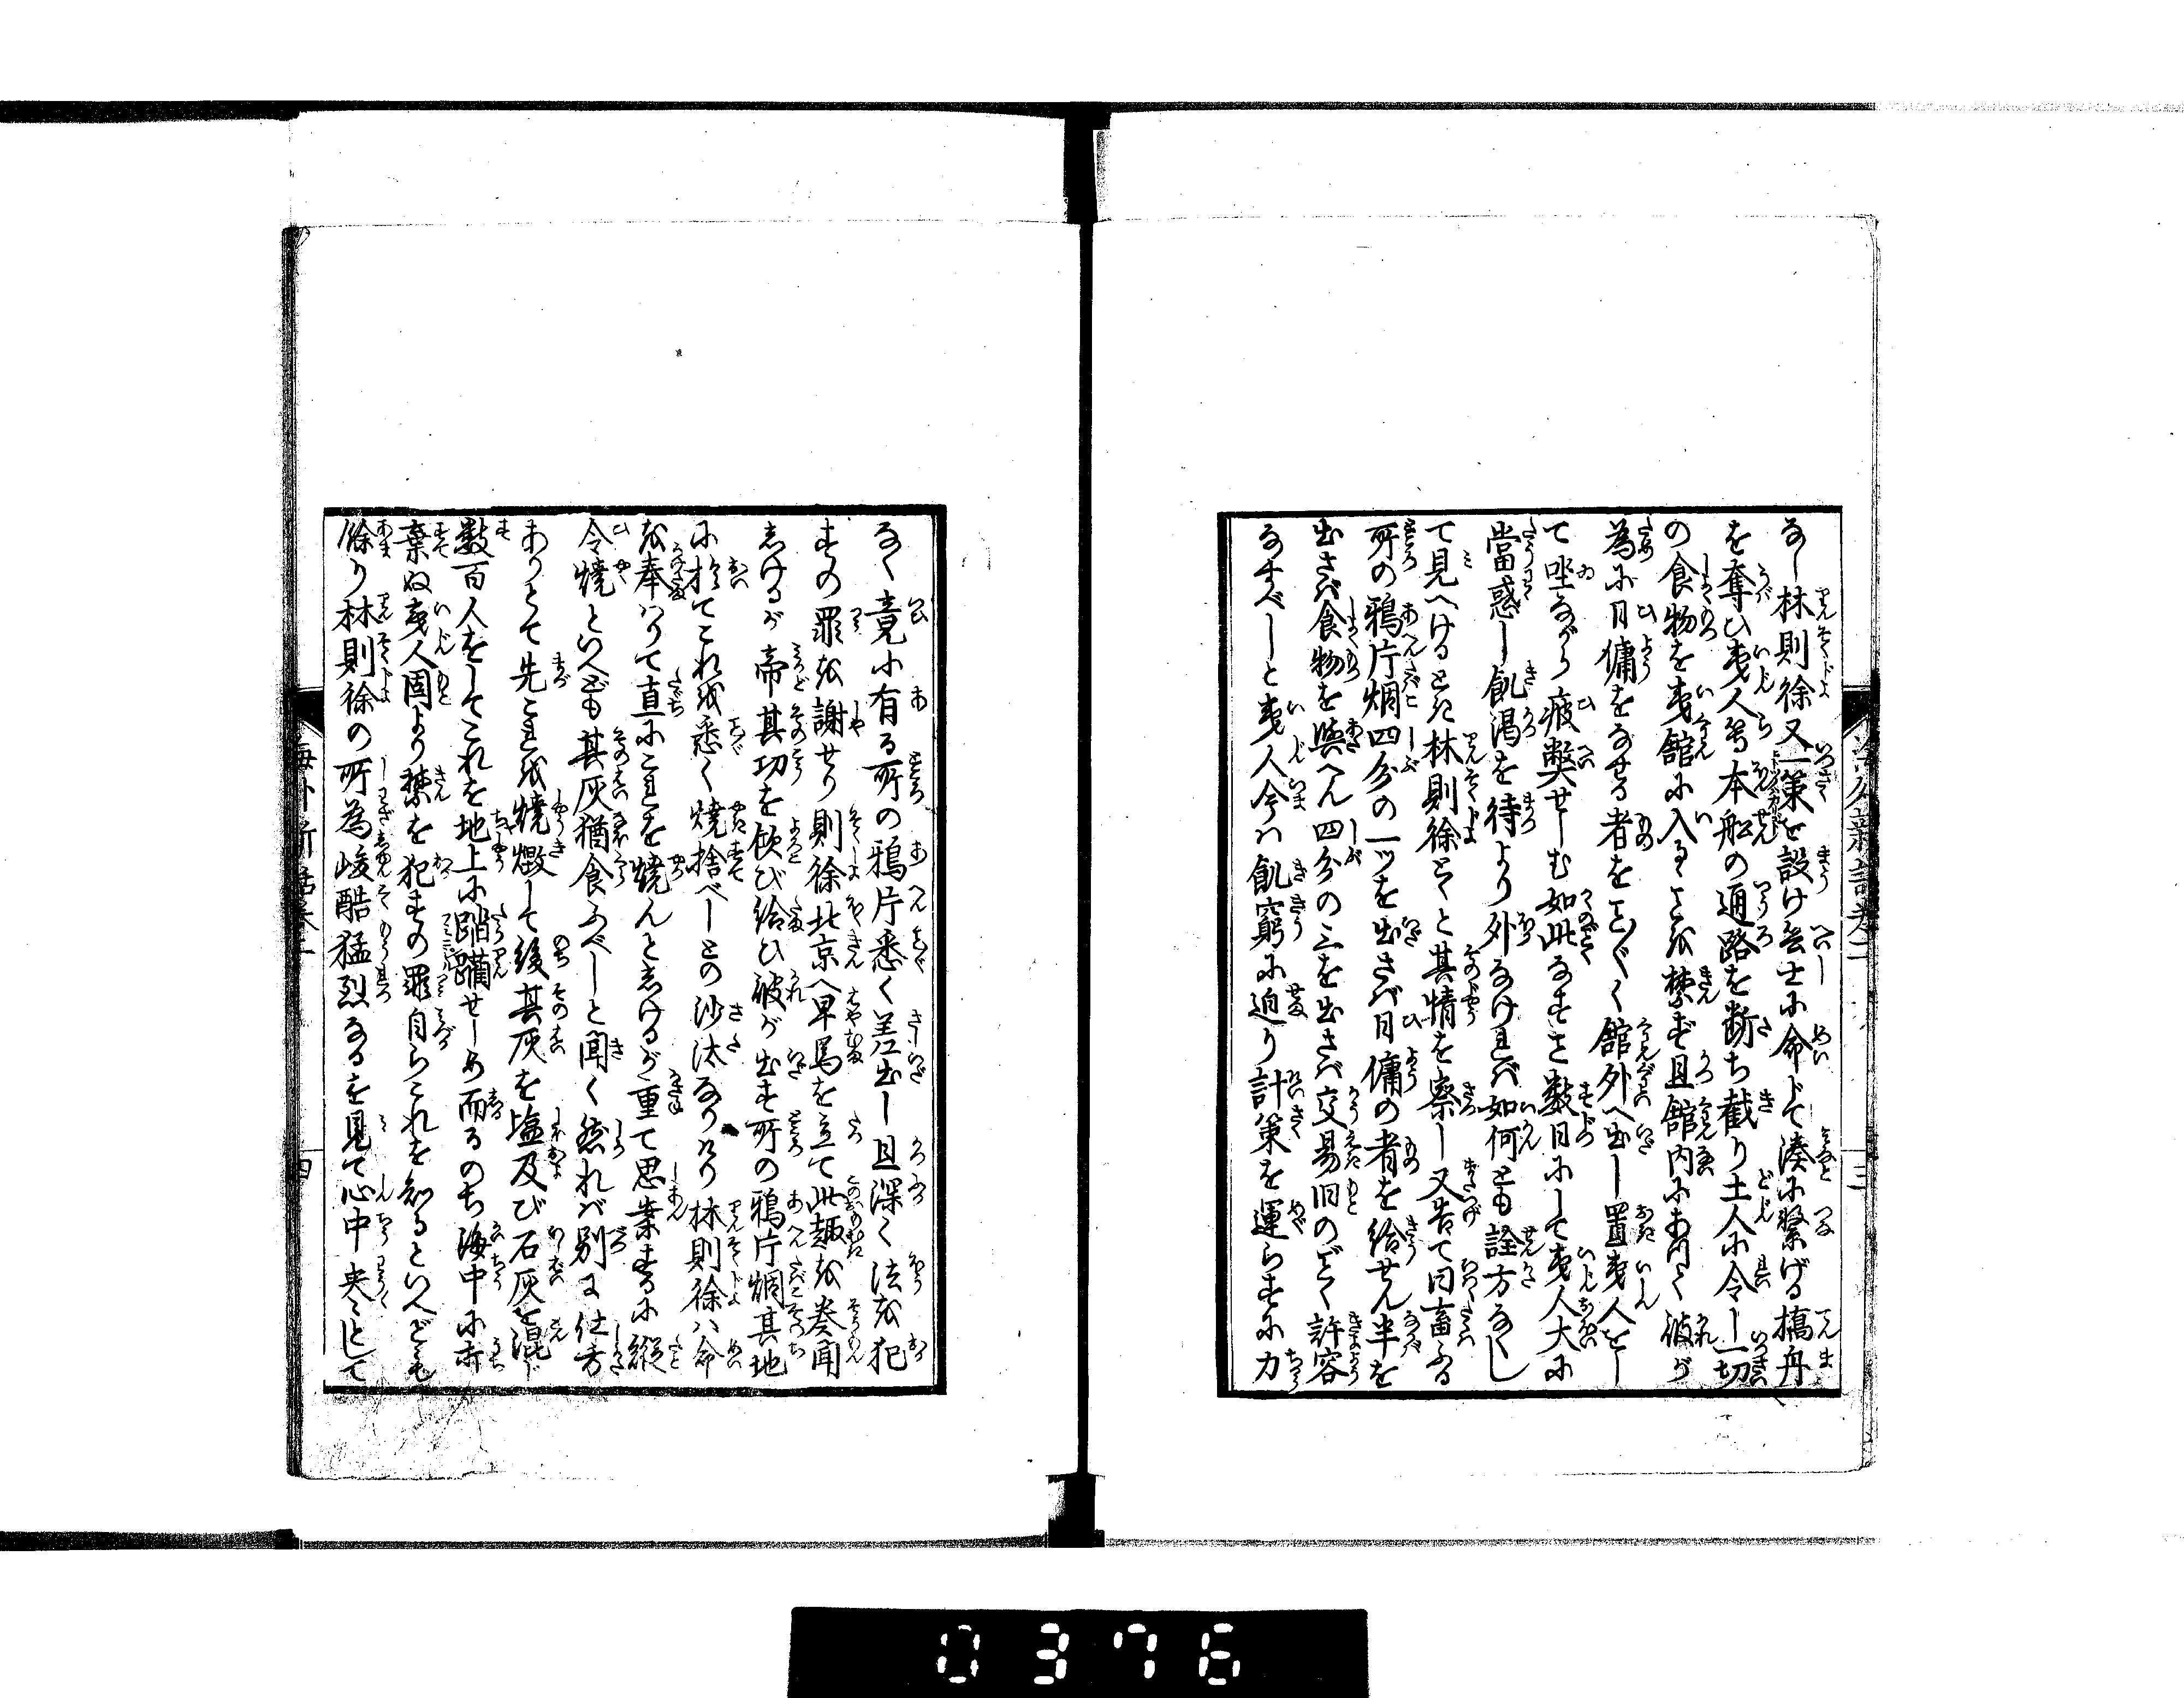 なし林則徐又一策を設け兵士に命じて湊に繋げる槗舟
を奪ひ夷人等本船の通路を断ち截り土人に令し一切
の食物を夷館に入るゝことを禁ぜ且館内にあつて彼が
為に日傭をなせる者をこと〴〵く館外へ出し置夷人をし
て坐ながら疲弊せしむ如此なすこと数日にして夷人大に
當惑し飢渇を待より外なければ如何とも詮方なくし
て見へけるとき林則徐とくと其情を察し又告て曰畜ふる
所の鴉片烟四分の一ツを出さば日傭の者を給せん半を
出さば食物を與へん四分の三を出さば交易旧のごとく許容
なすべしと夷人今ハ飢窮に迫り計策を運らすに力
なく竟に有る所の鴉片悉く差出し且深く法を犯
すの罪を謝せり則徐北京へ早馬を立て此趣を奏聞
しけるが帝其功を欣び給ひ彼が出す所の鴉片烟其地
に於てこれを悉く焼捨べしとの沙汰なりけり林則徐ハ命
を奉ハりて直にこれを焼んとしけるが重て思案するに縦
令焼といへども其灰猶食ふべしと聞く然れバ別に仕方
ありとて先これを焼燬して後其灰を塩及び石灰を混じ
数百人をしてこれを地上に踏躪せしめ而るのち海中に
棄ぬ夷人固より禁を犯すの罪自らこれを知るといへども
餘り林則徐の所為峻酷猛烈なるを見て心中怏々として
海外新話巻二
三
海外新話巻二
四
0376